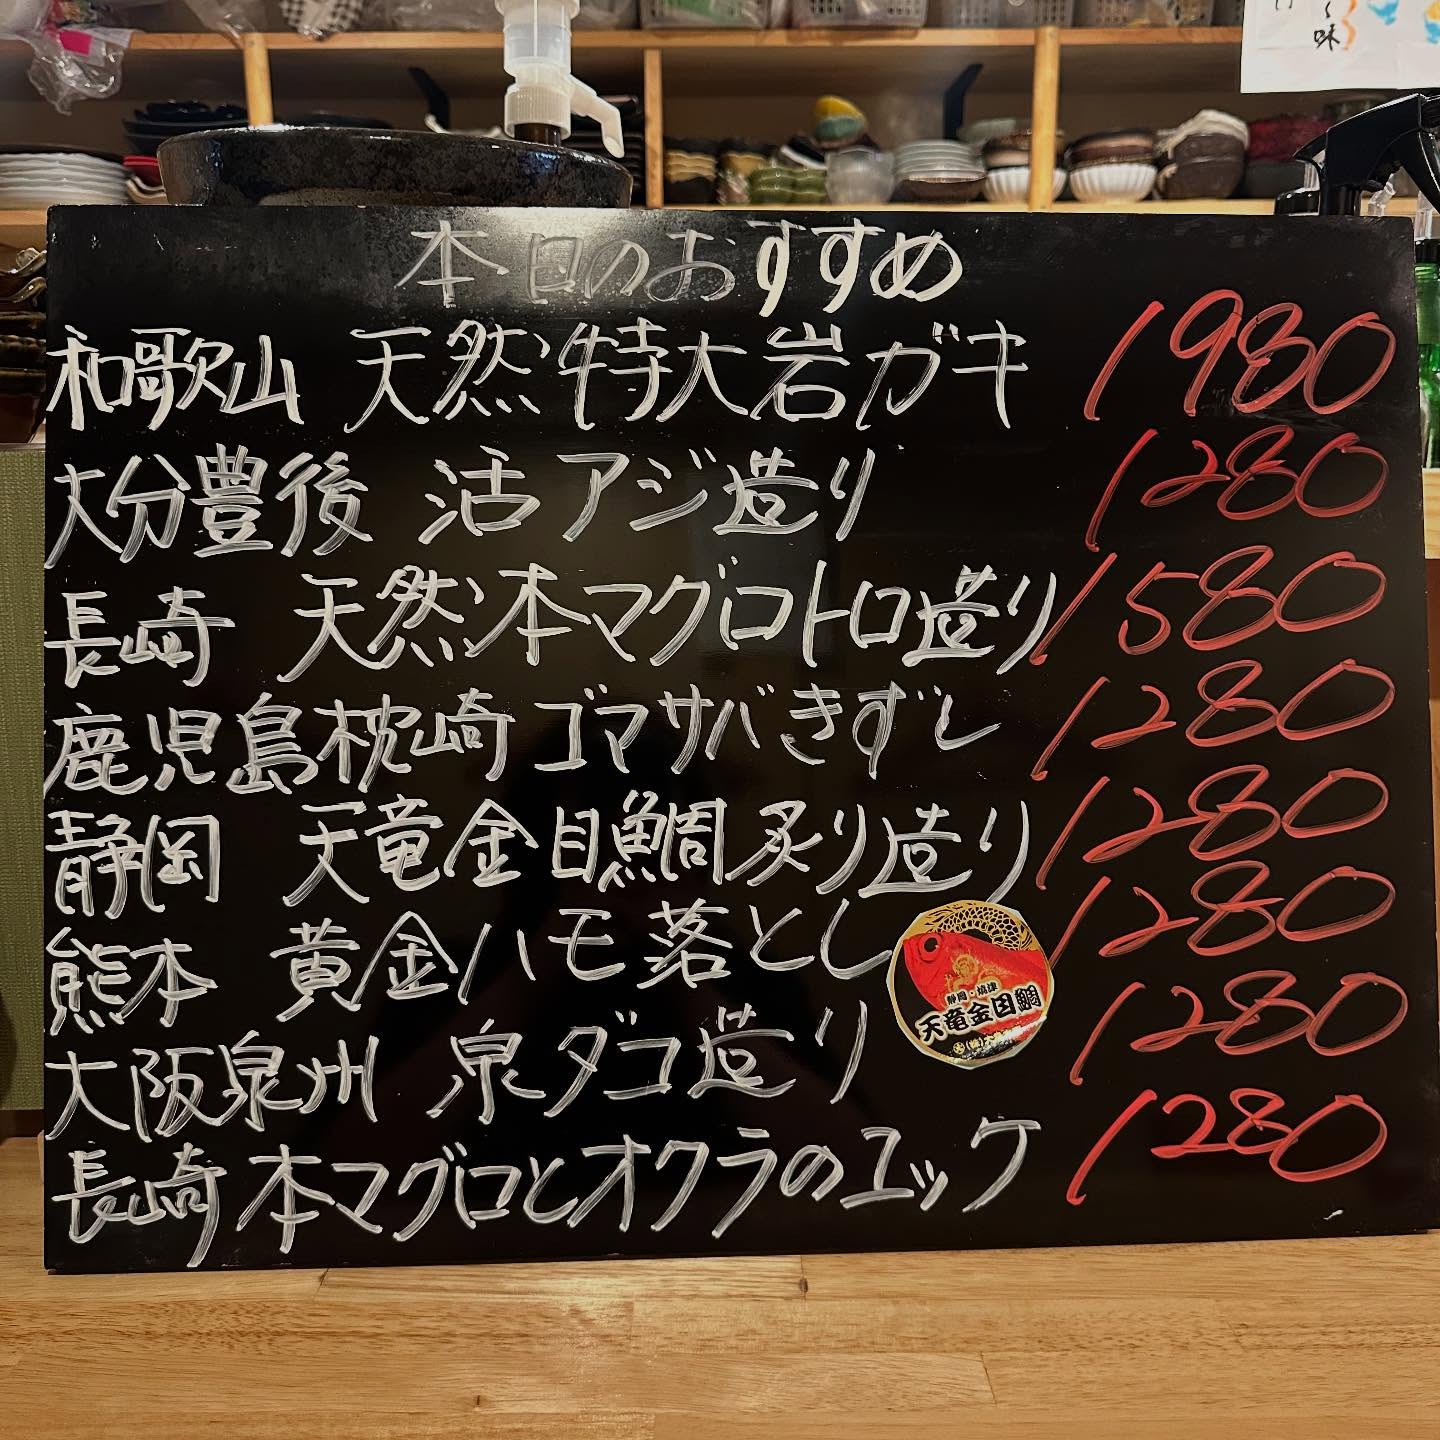 本日のおすすめ
和歌山 天然特大岩ガキ 1980
大分豊後 活アジ造り 1280
長崎 天然本マグロトロ造り 1580
鹿児島枕崎 ゴマサバきずし 1280
静岡 天竜金目鯛炙り造り 1280
熊本 黄金ハモ落とし 1280
大阪泉州 泉ダコ造り 1280
長崎 本マグロとオクラのユッケ 1280
静岡・焼津
天竜金目鯛
味